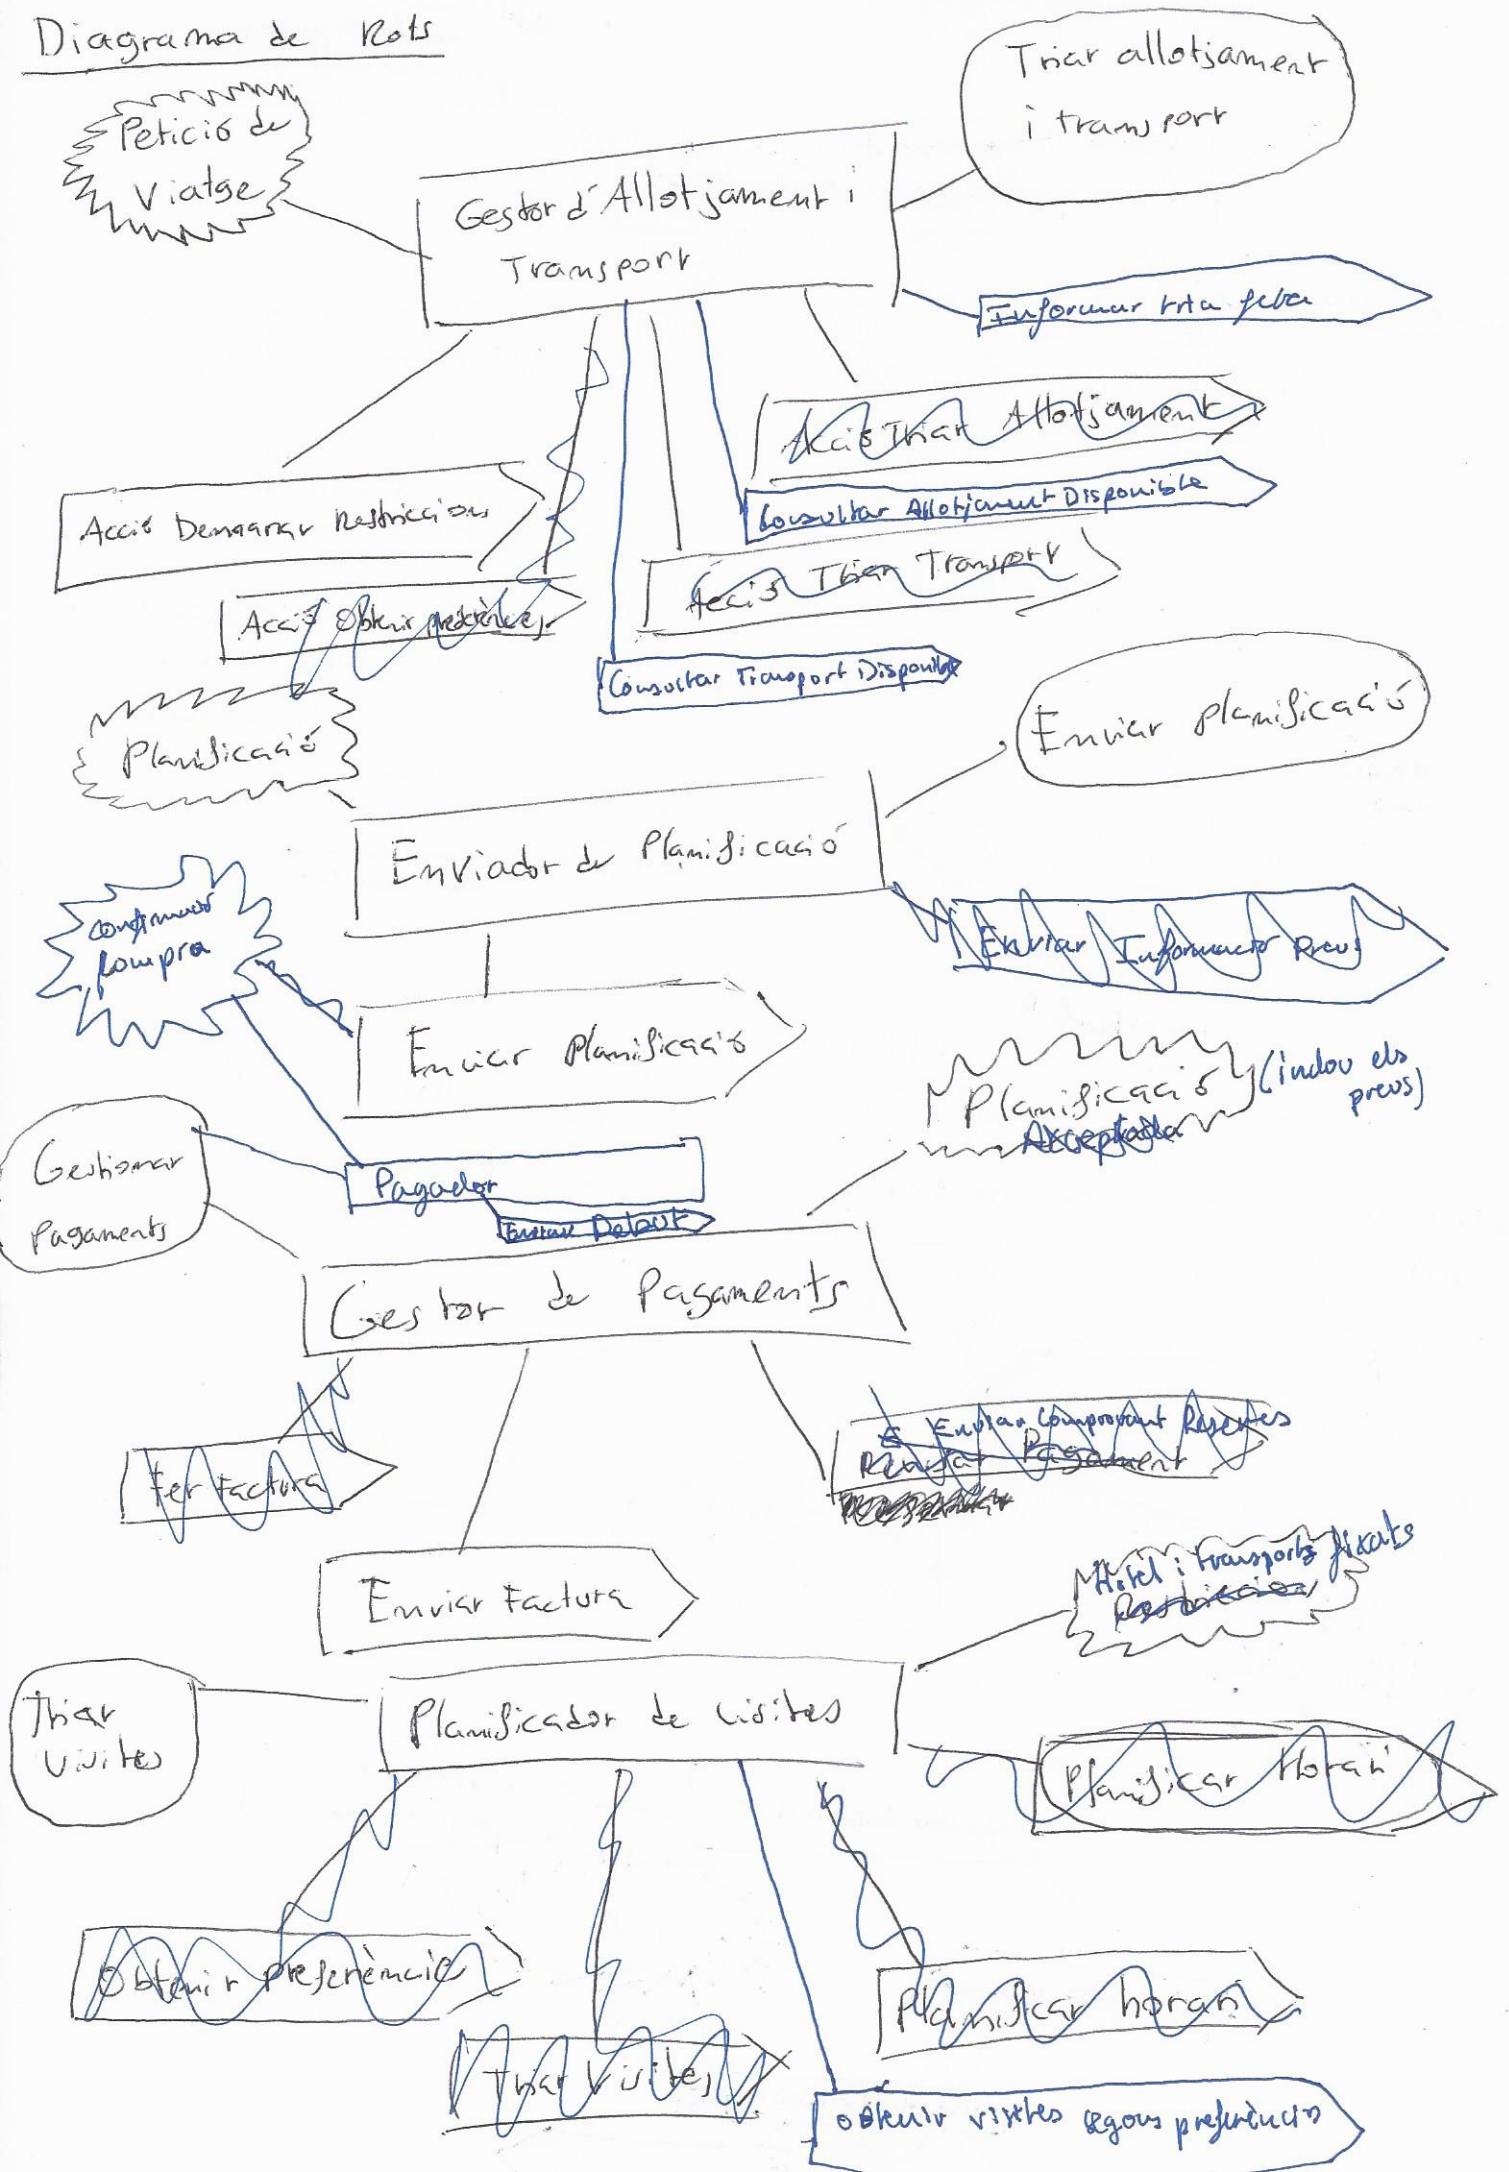 Diagrama de Rols
Petició de
Viatge
Triar allotjament
i transport
Gestor d'Allotjament i
Transport
Informar tria feta
Acció Triar Allotjament
Consultar Allotjament Disponible
Acció Demanar Restriccions
Acció Triar Transport
Acció Obtenir preferències
Consultar Transport Disponible
Planificació
Enviar planificació
Enviador de Planificació
confirmació
compra
Enviar Informació Preus
Enviar Planificació
Planificació (indou els
preus)
Acceptada
Gestionar
Pagaments
Pagador
Enviar
Gestor de Pagaments
Enviar Comprovant Reserves
Pagament
Fer Factura
Hotel i transports fixats
Restriccions
Enviar Factura
Triar
Visites
Planificador de visites
Planificar Horari
Obtenir preferències
Planificar horari
Triar Visites
Obtenir visites segons preferències